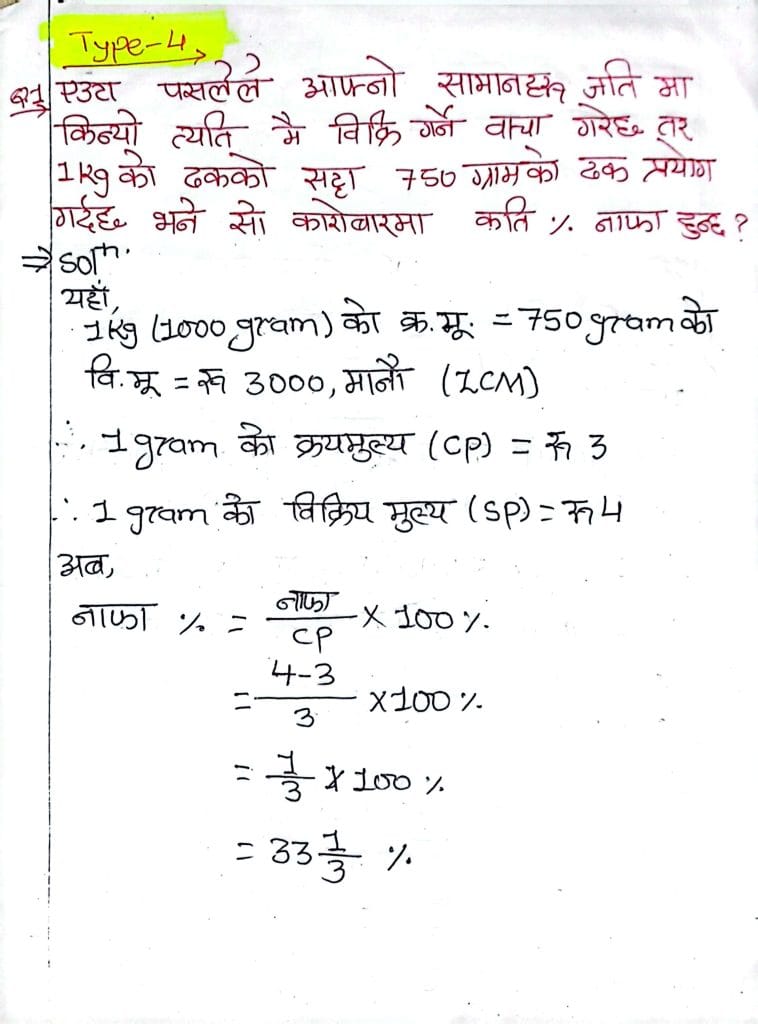 Type-4
Q.1 एउटा पसलेले आफ्नो सामानहरू जति मा
किन्यो त्यति मै विक्रि गर्ने वाचा गरेछ तर
1kg को ढकको सट्टा 750 ग्रामको ढक प्रयोग
गर्दछ भने सो कारोबारमा कति % नाफा हुन्छ ?
⇒ solⁿ.
यहाँ,
1kg (1000 gram) को क्र.मू. = 750 gram को
वि.मू = रू 3000, मानौ (LCM)
∴ 1 gram को क्रयमुल्य (CP) = रू 3
∴ 1 gram को विक्रिय मुल्य (SP) = रू 4
अब,
नाफा % = नाफा/CP × 100 %.
= 4-3/3 × 100 %
= 1/3 × 100 %
= 33 1/3 %